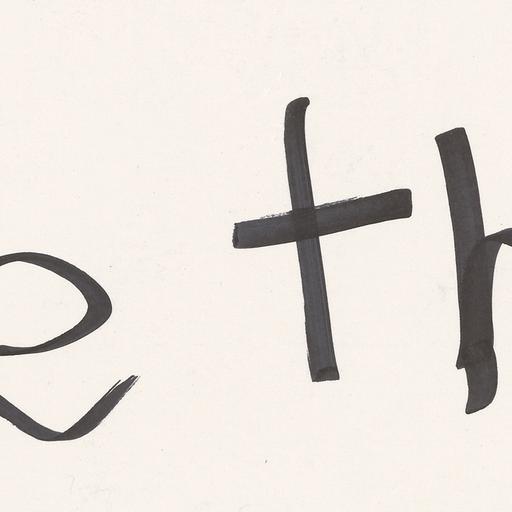 e th